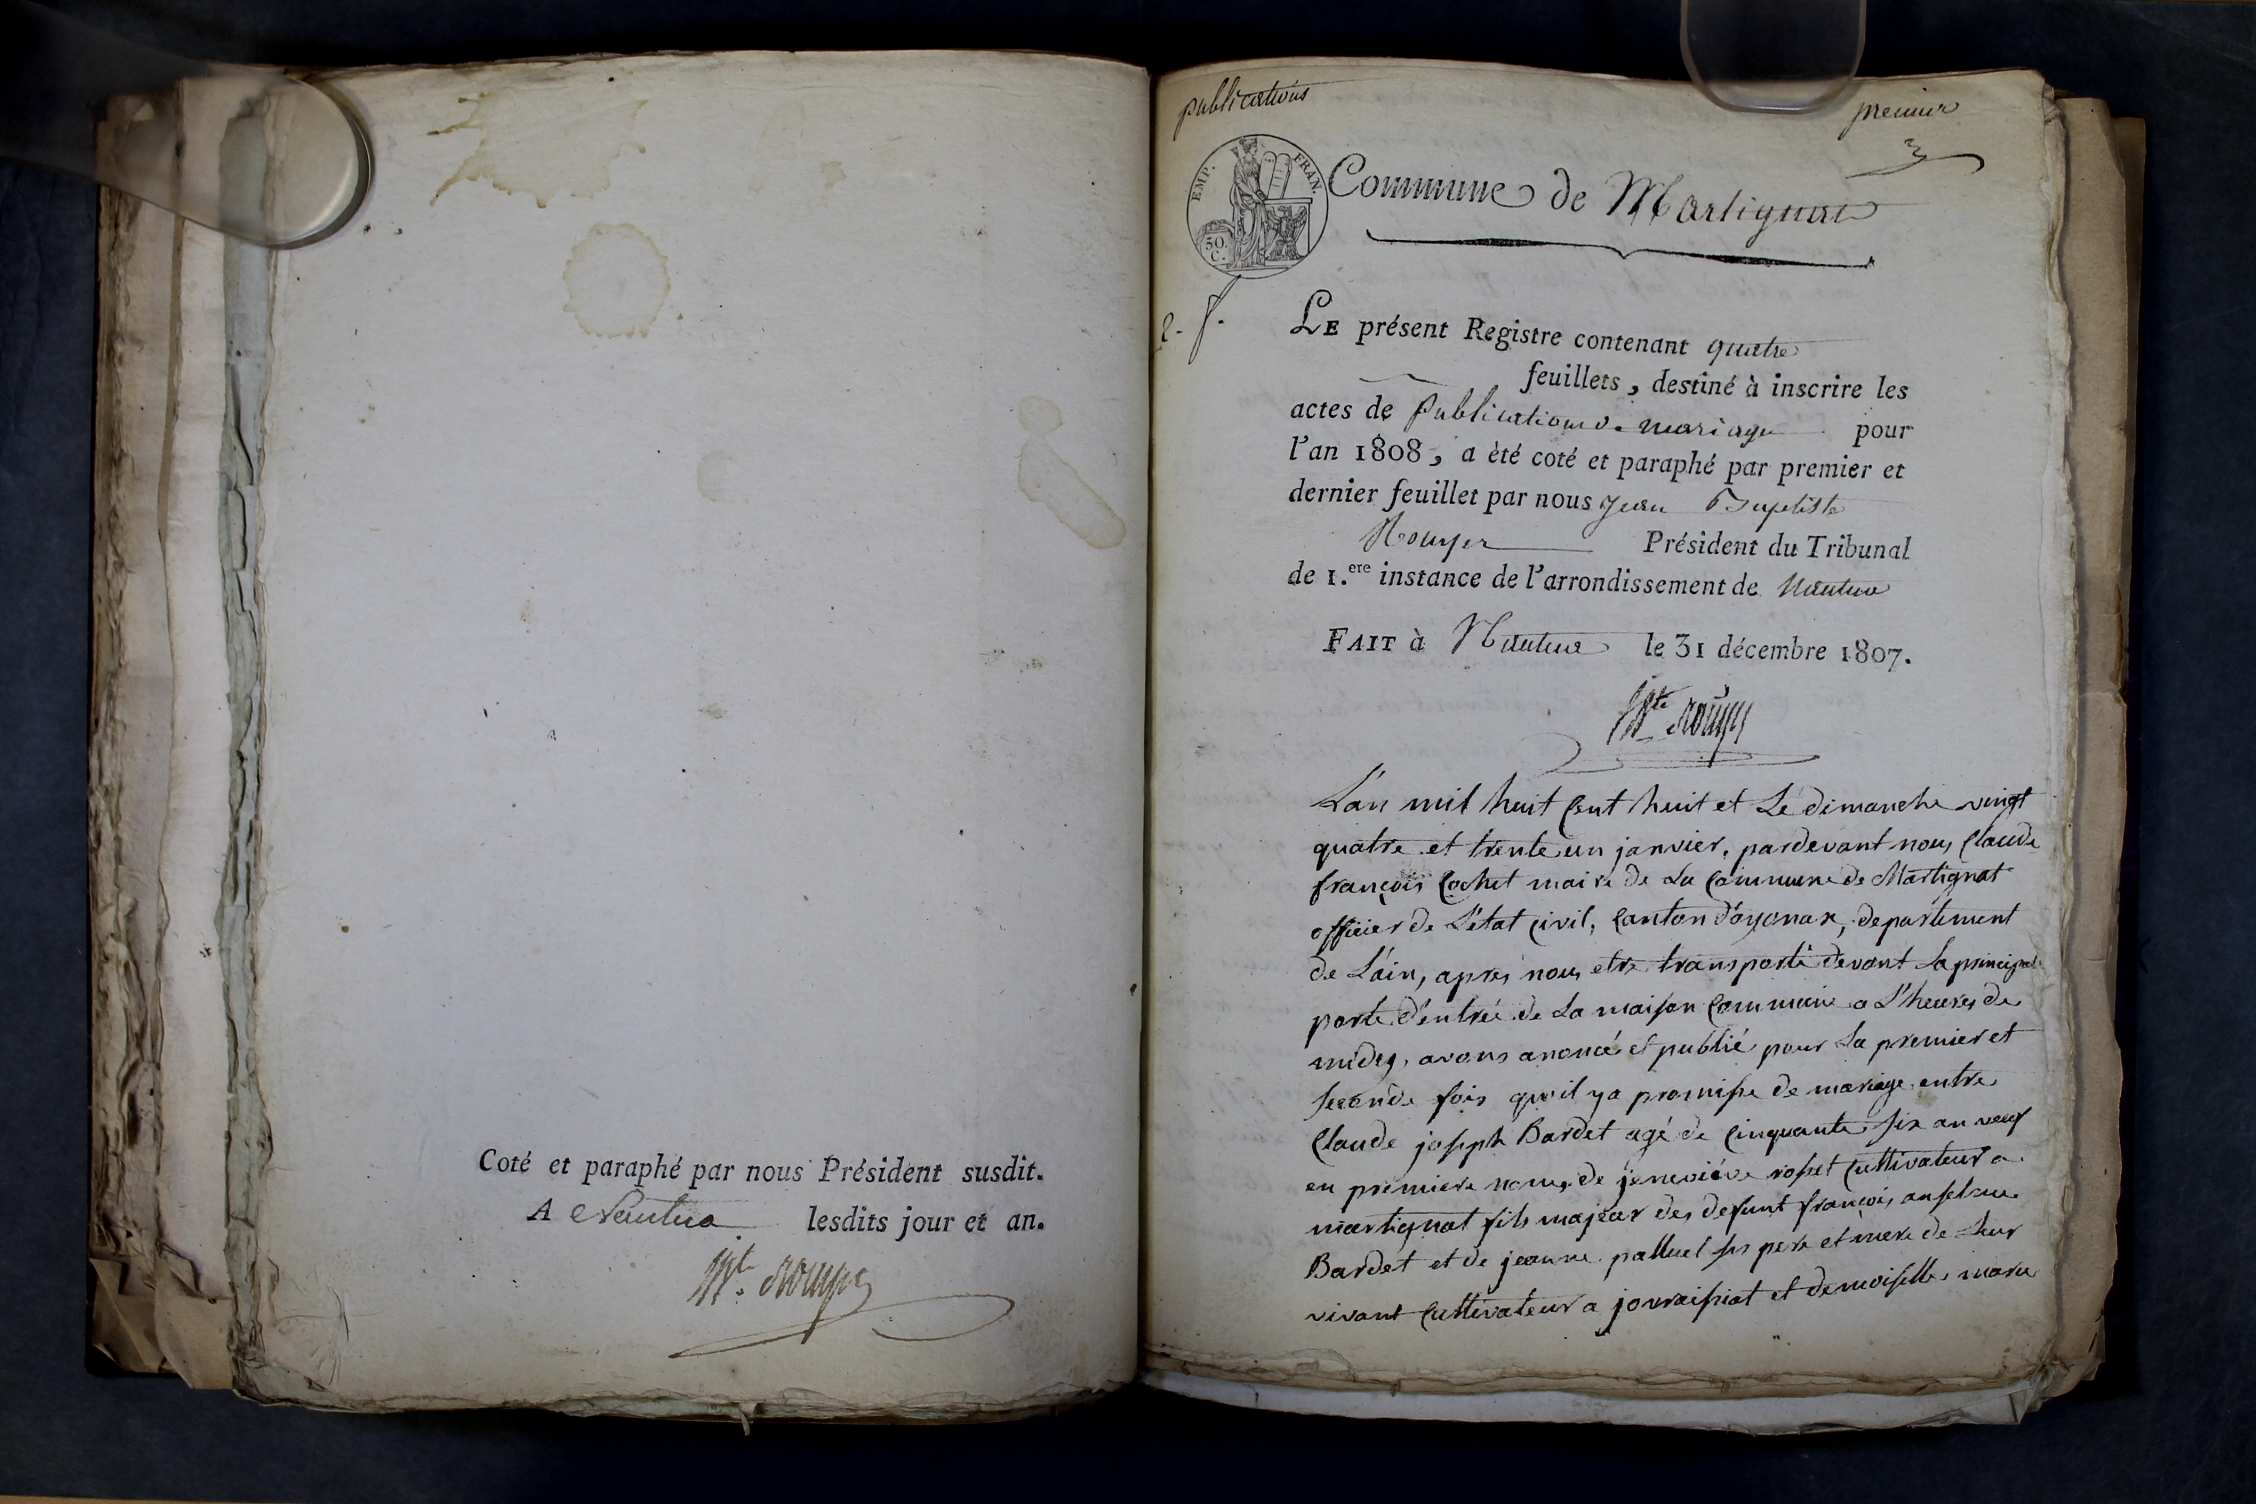 Coté et paraphé par nous Président susdit.
A Nantua lesdits jour et an.
Bte. Rouyer
publications
premier
EMP. FRAN.
50. C.
Commune de Martignat
2. f.
LE présent Registre contenant quatre
feuillets, destiné à inscrire les
actes de Publication de mariage pour
l'an 1808, a èté coté et paraphé par premier et
dernier feuillet par nous Jean Baptiste
Rouyer Président du Tribunal
de 1.ere instance de l'arrondissement de Nantua
FAIT à Nantua le 31 décembre 1807.
Bte Rouyer
L'an mil huit Cent huit et Le dimanche vingt
quatre et trente un janvier, pardevant nous Claude
françois Cochet maire de La Commune de Martignat
officier de L'état Civil, Canton d'oyonax, departement
de L'ain, apres nous etre transporté devant La principal
porte d'entrée de La maison Commune a L'heures de
midy, avons anoncé et publié pour La premier et
seconde fois qu'il y a promisse de mariage entre
Claude joseph Bardet agé de Cinquante six an veuf
en premiere noms de jeneviéve rosset Cultivateur a
martignat fils majeur des defunt françois anselme
Bardet et de jeanne palluel ses pere et mere de Leur
vivant Cultivateur a jouraissiat et demoiselle marie